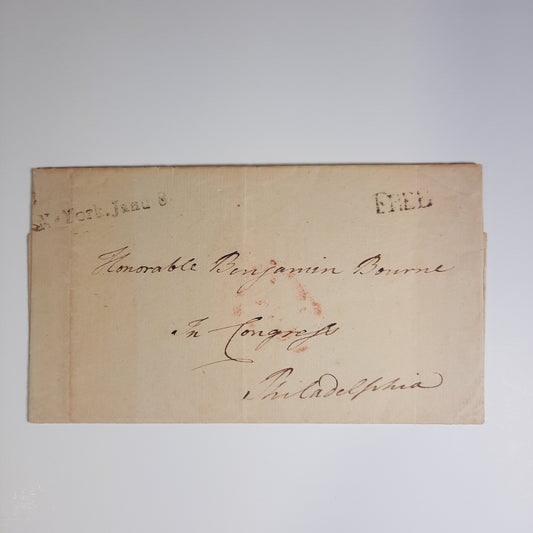 N-York, Janu 8
FREE
Honorable Benjamin Bourne
In Congress
Philadelphia